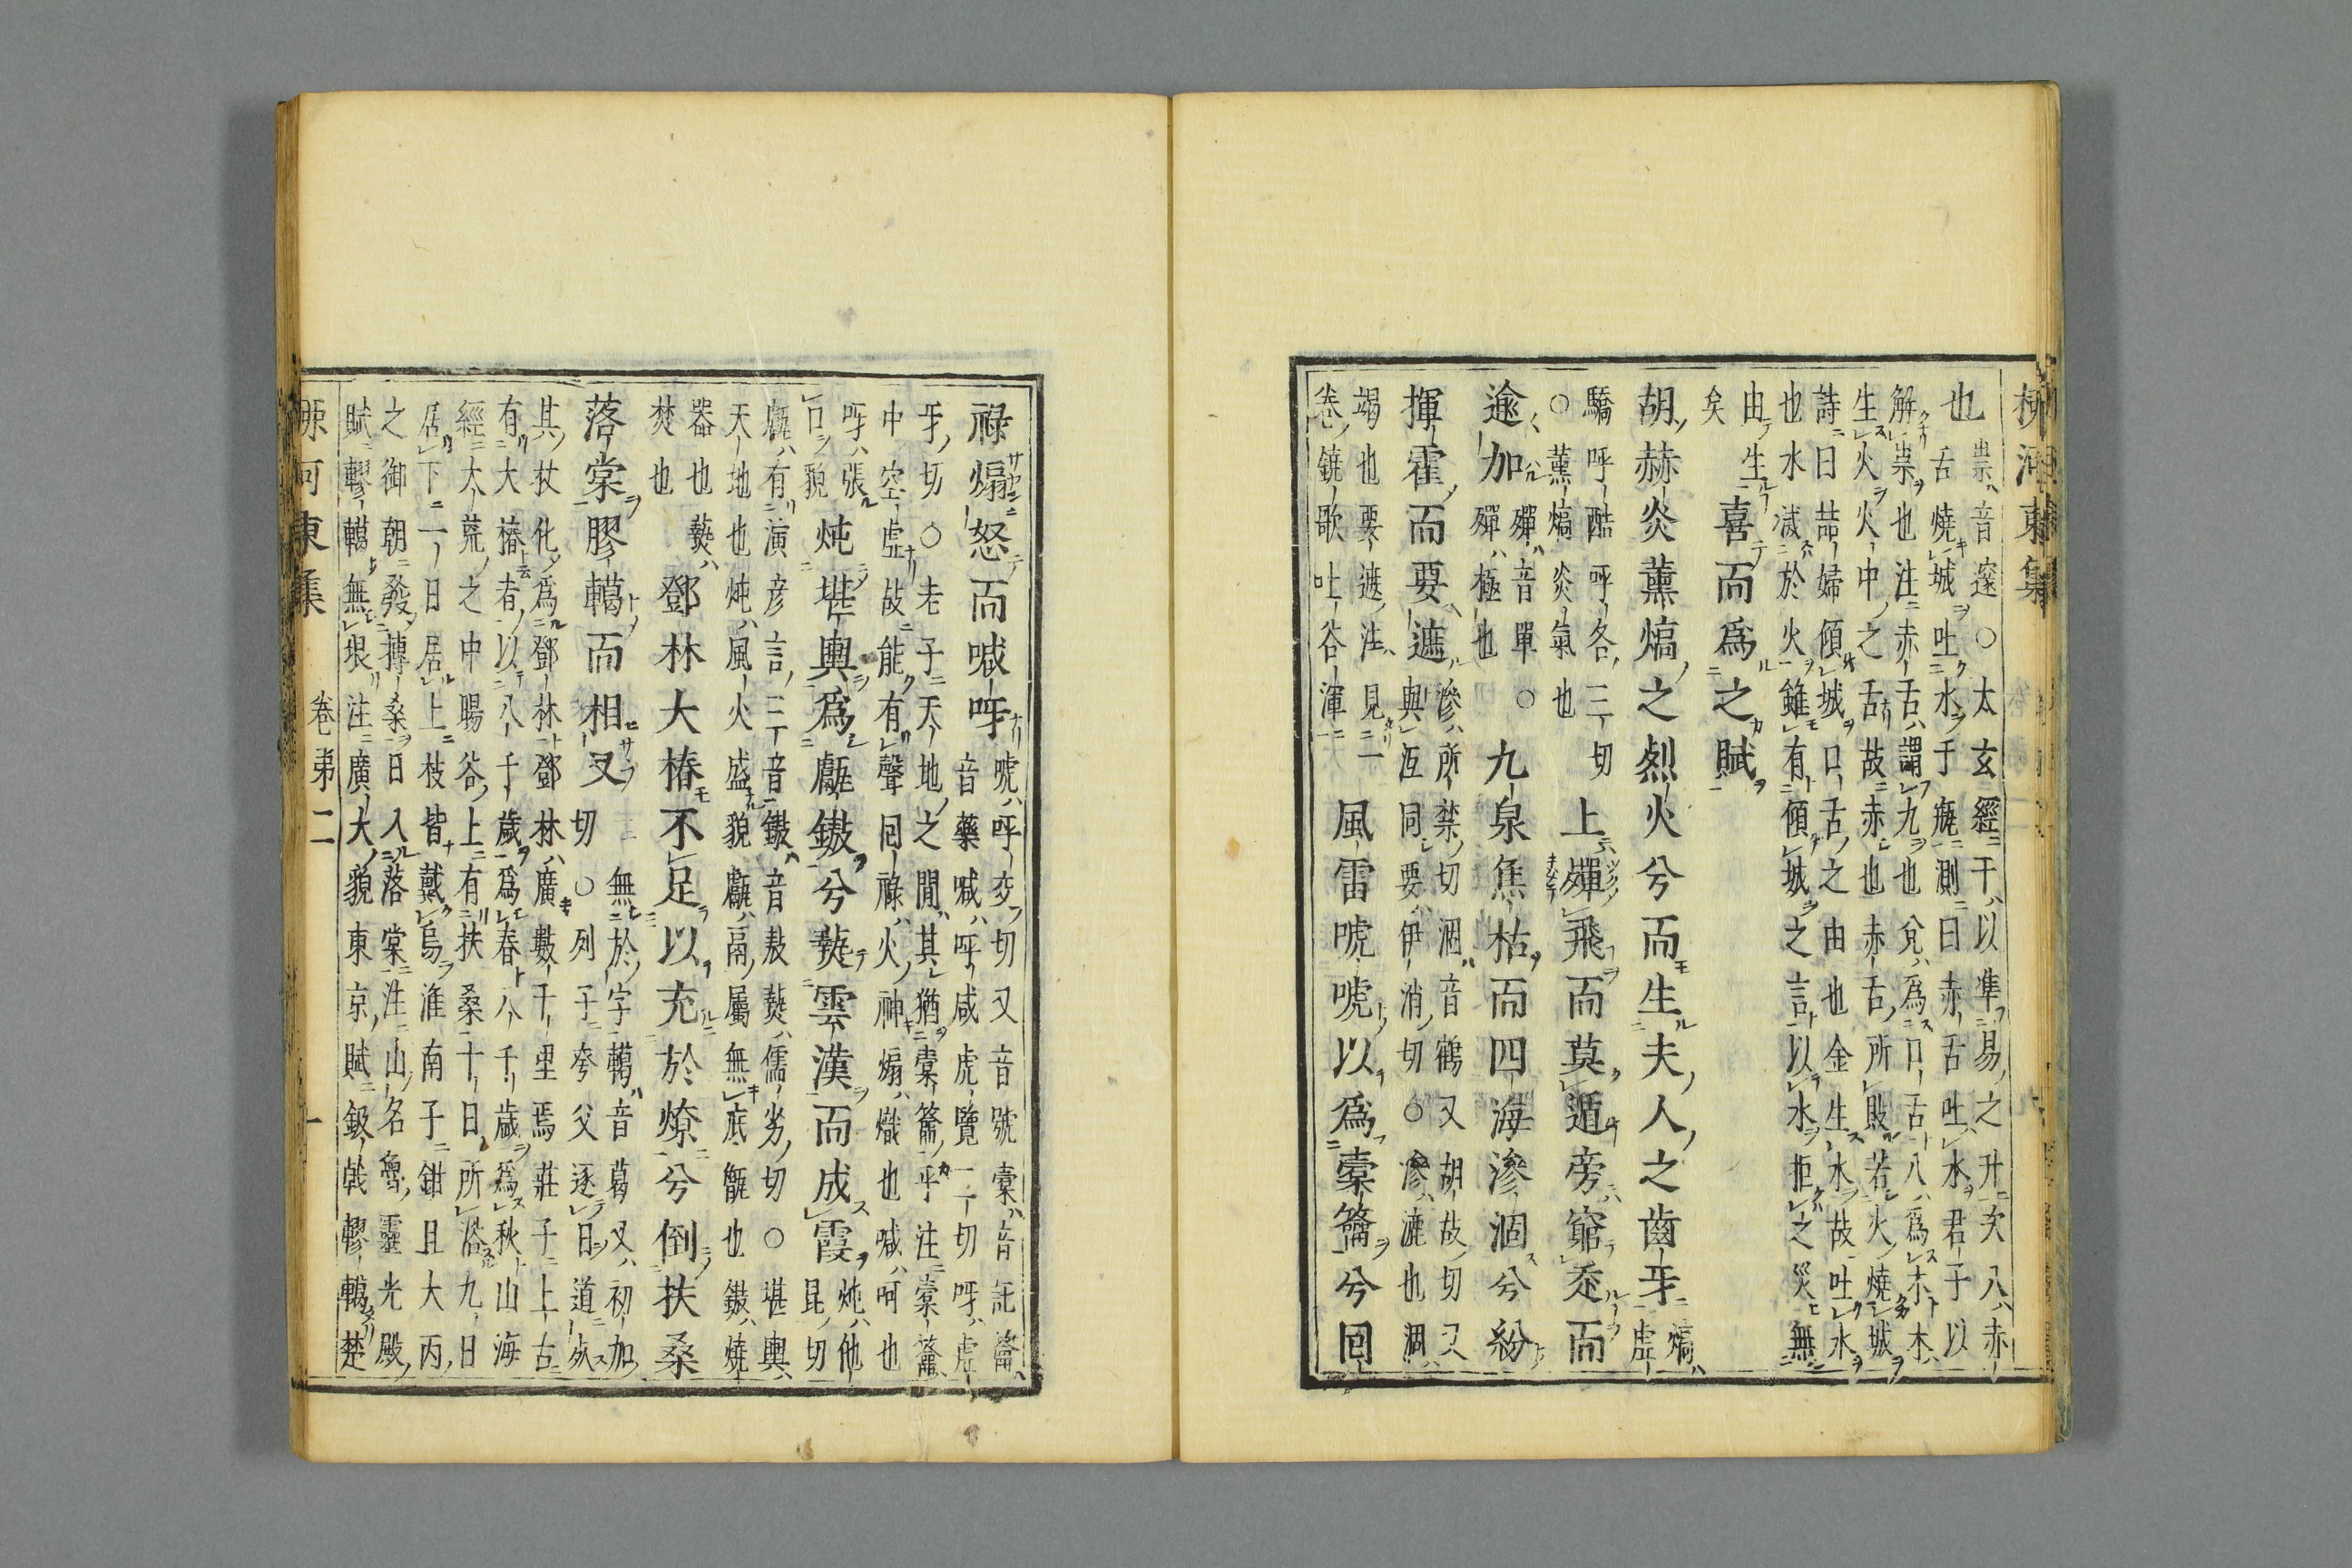 柳河東集
也
祟音邃○太玄經干以準易之升次八赤
舌燒城吐水于瓶測曰赤舌吐水君子以
解祟也注赤舌謂九也兌為口舌八為木木
生火火中之舌故赤也赤舌所敗若火燒城
詩曰喆婦傾城口舌之由也金生水故吐水
也水滅於火雖有傾城之言以水拒之災無
由生
矣
喜而為之賦
胡赫炎薰熇之烈火兮而生夫人之齒牙
熇虛
驕呼酷呼各三切
○薰熇炎氣也
上殫飛而莫遁旁窮走而
逾加
殫音單○
殫極也
九泉焦枯而四海滲涸兮紛
揮霍而要遮
滲所禁切涸音鶴又胡故切又
與冱同要伊消切○滲漉也涸
竭也要遮注見一
卷鐃歌吐谷渾
風雷唬唬以為橐籥兮回
祿煽怒而喊呀
唬呼交切又音號橐音託籥
音藥喊呼咸虎覽二切呀虛
牙切○老子天地之間其猶橐籥乎注橐籥
中空虛故能有聲回祿火神煽熾也喊呵也
呀張
口貌
炖堪輿為甗鏊兮爇雲漢而成霞
炖他
昆切
甗有演彥言三音鏊音敖爇儒劣切○堪輿
天地也炖風火盛貌甗鬲屬無底甑也鏊燒
器也爇
焚也
鄧林大椿不足以充於燎兮倒扶桑
落棠膠轕而相叉
無於字轕音葛叉初加
切○列子夸父逐日道死
其杖化為鄧林鄧林廣數千里焉莊子上古
有大椿者以八千歲為春八千歲為秋山海
經大荒之中暘谷上有扶桑十日所浴九日
居下一日居上枝皆戴烏淮南子鉗且大丙
之御朝發搏桑日入落棠注山名魯靈光殿
賦轇轕無垠注廣大貌東京賦鈒戟轇轕楚
河東集 卷弟二 一